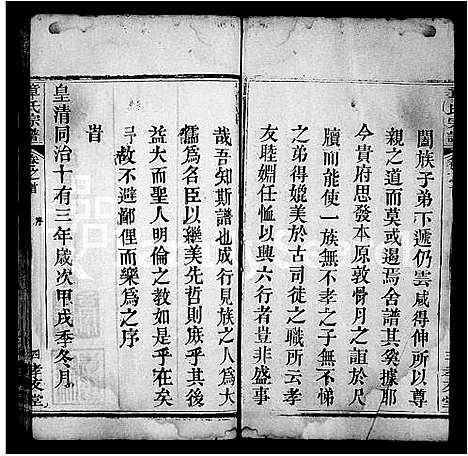 闔族子弟下遞仍雲咸得伸所以尊
親之道而莫或遏焉舍譜其奚據耶
今貴府思發本原敦骨月之誼於尺
牘而能使一族無不孝之子無不悌
之弟得媲美於古司徒之職所云孝
友睦婣任恤以興六行者豈非盛事
哉吾知斯譜也成行見族之人為大
儒為名臣以繼美先哲則庶乎其後
益大而聖人明倫之教如是乎在矣
故不避鄙俚而樂為之序
皇清同治十有三年歲次甲戌季冬月
章氏宗譜
卷之首
序
四 孝友堂